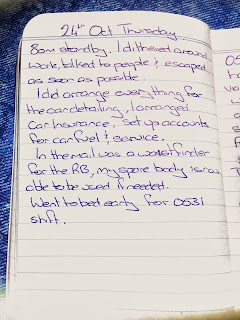 24th Oct Thursday
8am standby. I dithered around
work, talked to people & escaped
as soon as possible.
I did arrange everything for
the car detailing, I arranged
Car Insurance, set up accounts
for car fuel & service.
In the mail was a waist finder
for the RB, my spare body is now
able to be used if needed.
Went to bed early for 0531
shift.